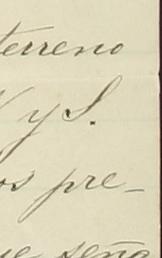 terreno
N y S.
os pre-
ue seña